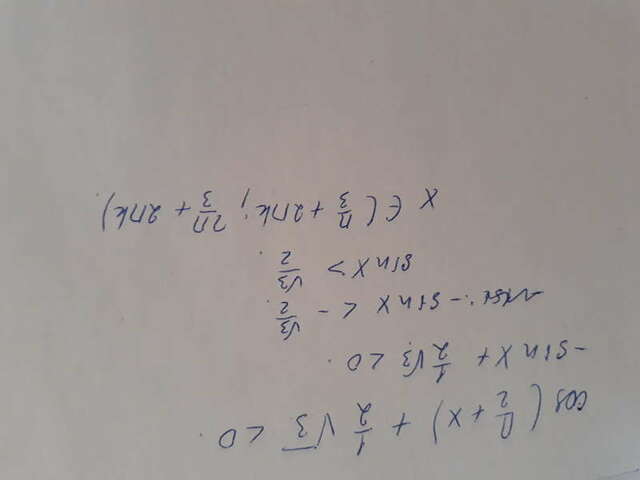 cos(π/2 + x) + 1/2 √3 < 0.
-sin x + 1/2 √3 < 0.
-sin x < - √3/2.
sin x > √3/2.
x ∈ (π/3 + 2πk; 2π/3 + 2πk).